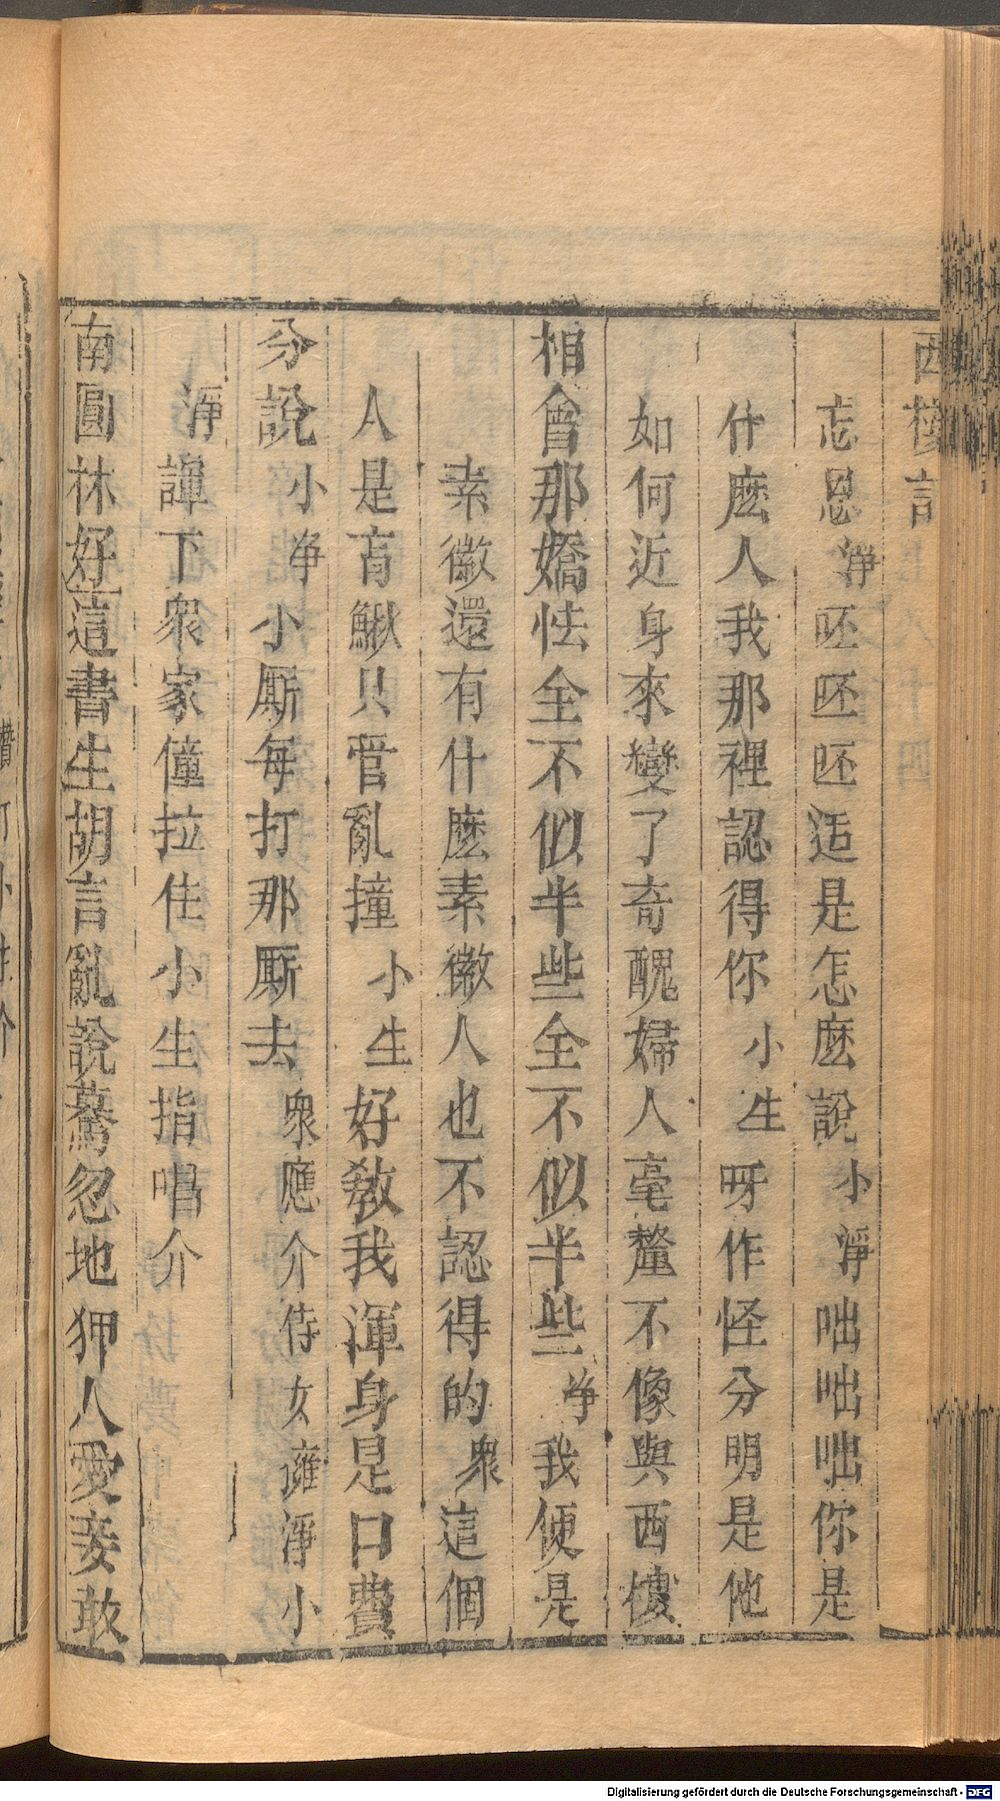 西樓記
忘恩淨呸呸呸這是怎麽說小淨咄咄咄你是
什麽人我那裡認得你小生呀作怪分明是他
如何近身來變了奇醜婦人毫釐不像與西樓
相會那嬌怯全不似半些全不似半些淨我便是
素徽還有什麽素徽人也不認得的衆這個
人是盲鰍只管亂撞小生好敎我渾身是口費
分說小淨小厮每打那厮去衆應介侍女擁淨小
淨諢下衆家僮拉住小生指唱介
南園林好這書生胡言亂說驀忽地狎人愛妾敢
Digitalisierung gefördert durch die Deutsche Forschungsgemeinschaft - DFG